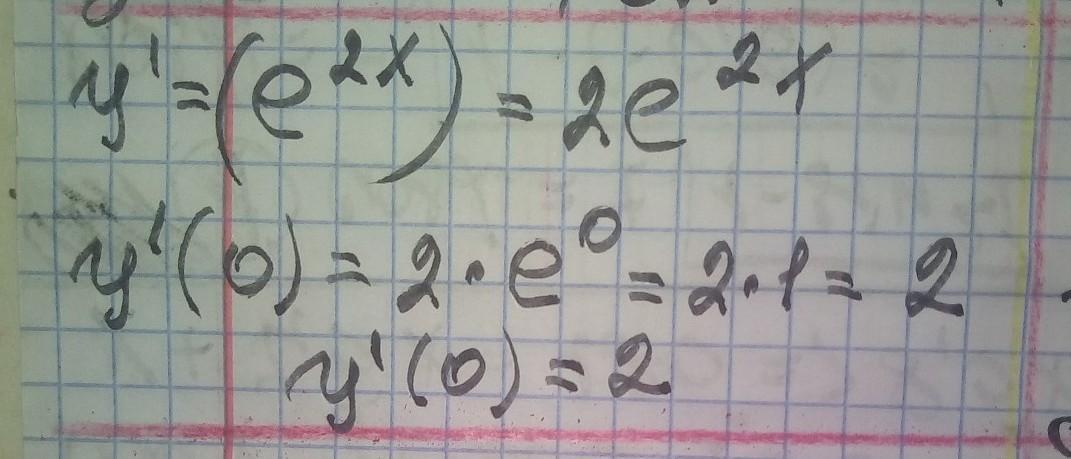 y' = (e^{2x}) = 2e^{2x}
y'(0) = 2 · e^0 = 2 · 1 = 2
y'(0) = 2